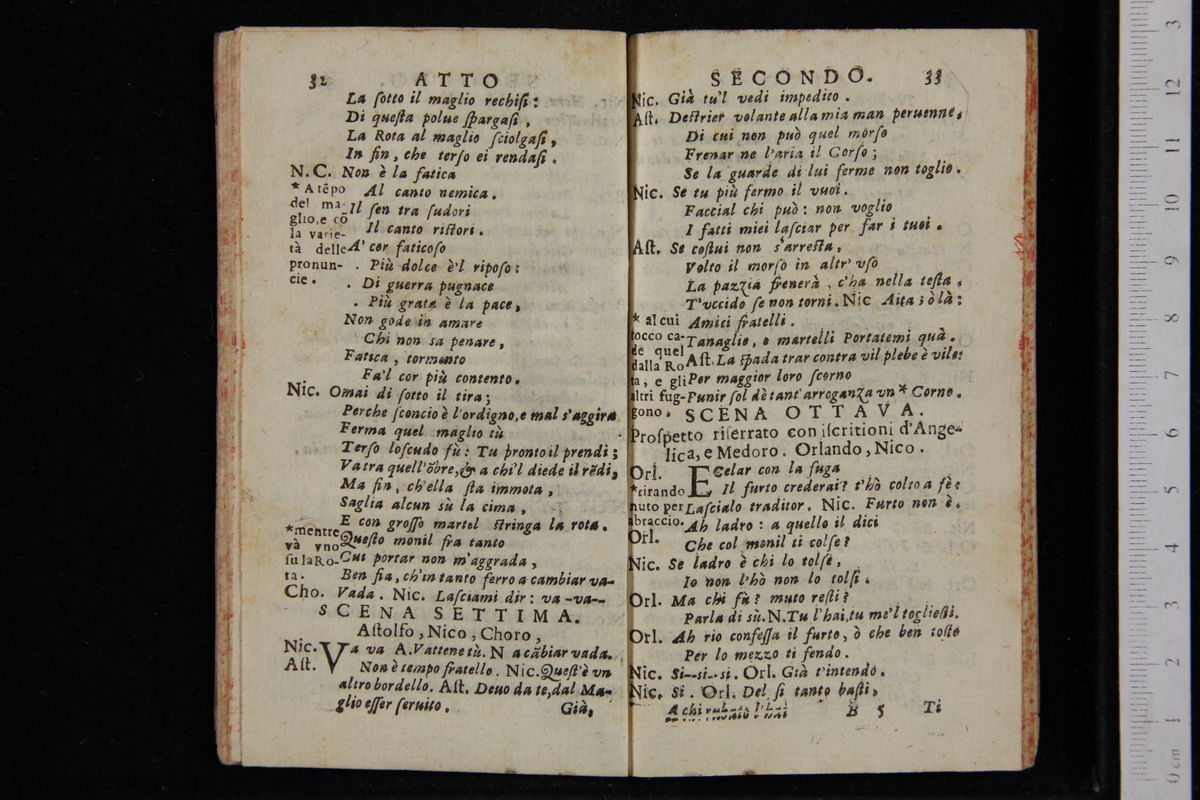 32 ATTO
La ſotto il maglio rechiſi:
Di queſta polue ſpargaſi,
La Rota al maglio ſciolgaſi,
In fin, che terſo ei rendaſi.
N.C. Non è la fatica
* A tẽpo del ma-glio, e cõ la varie-tà delle pronun-cie.
Al canto nemica.
Il ſen tra ſudori
Il canto riſtori.
A' cor faticoſo
Più dolce è'l ripoſo:
Di guerra pugnace
Più grata è la pace,
Non gode in amare
Chi non sa penare,
Fatica, tormento
Fa'l cor più contento.
Nic. Omai di ſotto il tira;
Perche ſconcio è l'ordigno, e mal s'aggira
Ferma quel maglio tù
Terſo loſcudo fù: Tu pronto il prendi;
Va tra quell'õbre, & a chi'l diede il rẽdi,
Ma fin, ch'ella ſta immota,
Saglia alcun sù la cima,
E con groſſo martel ſtringa la rota.
*mentre và vno ſu la Ro-ta.
Queſto monil fra tanto
Cui portar non m'aggrada,
Ben fia, ch'in tanto ferro a cambiar va-
Cho. Vada. Nic. Laſciami dir: va-va--
SCENA SETTIMA.
Aſtolfo, Nico, Choro,
Nic. Va va A. Vattene tù. N a cãbiar vada.
Aſt. Non è tempo fratello. Nic. Queſt'è vn
altro bordello. Aſt. Deuo da te, dal Ma-
glio eſſer ſeruito. Già,
SECONDO. 33
Nic. Già tu'l vedi impedito.
Aſt. Deſtrier volante alla mia man peruenne,
Di cui non può quel morſo
Frenar ne l'aria il Corſo;
Se la guarde di lui ferme non toglio.
Nic. Se tu più fermo il vuoi.
Faccial chi può: non voglio
I fatti miei laſciar per far i tuoi.
Aſt. Se coſtui non s'arreſta,
Volto il morſo in altr' vſo
La pazzia frenerà, c'ha nella teſta.
T'uccido ſe non torni. Nic Aita; ò là:
* al cui tocco ca-de quel dalla Ro-ta, e gli altri fug-gono.
Amici fratelli.
Tanaglie, e martelli Portatemi quà.
Aſt. La ſpada trar contra vil plebe è vile:
Per maggior loro ſcorno
Punir ſol dè tant'arroganza vn * Corno.
SCENA OTTAVA.
Proſpetto riſerrato con iſcritioni d'Ange-
lica, e Medoro. Orlando, Nico.
Orl. ECelar con la fuga
Il furto crederai? t'hò colto a fè:
*tirando nuto per abraccio.
Laſcialo traditor. Nic. Furto non è.
Orl. Ah ladro: a quello il dici
Che col monil ti colſe?
Nic. Se ladro è chi lo tolſe,
Io non l'hò non lo tolſi.
Orl. Ma chi fù? muto reſti?
Parla di sù. N. Tu l'hai, tu me'l toglieſti.
Orl. Ah rio confeſſa il furto, ò che ben toſto
Per lo mezzo ti fendo.
Nic. Si--si--si. Orl. Già t'intendo.
Nic. Si. Orl. Del ſi tanto baſti,
A chi rubato l'hai
B 5 Ti